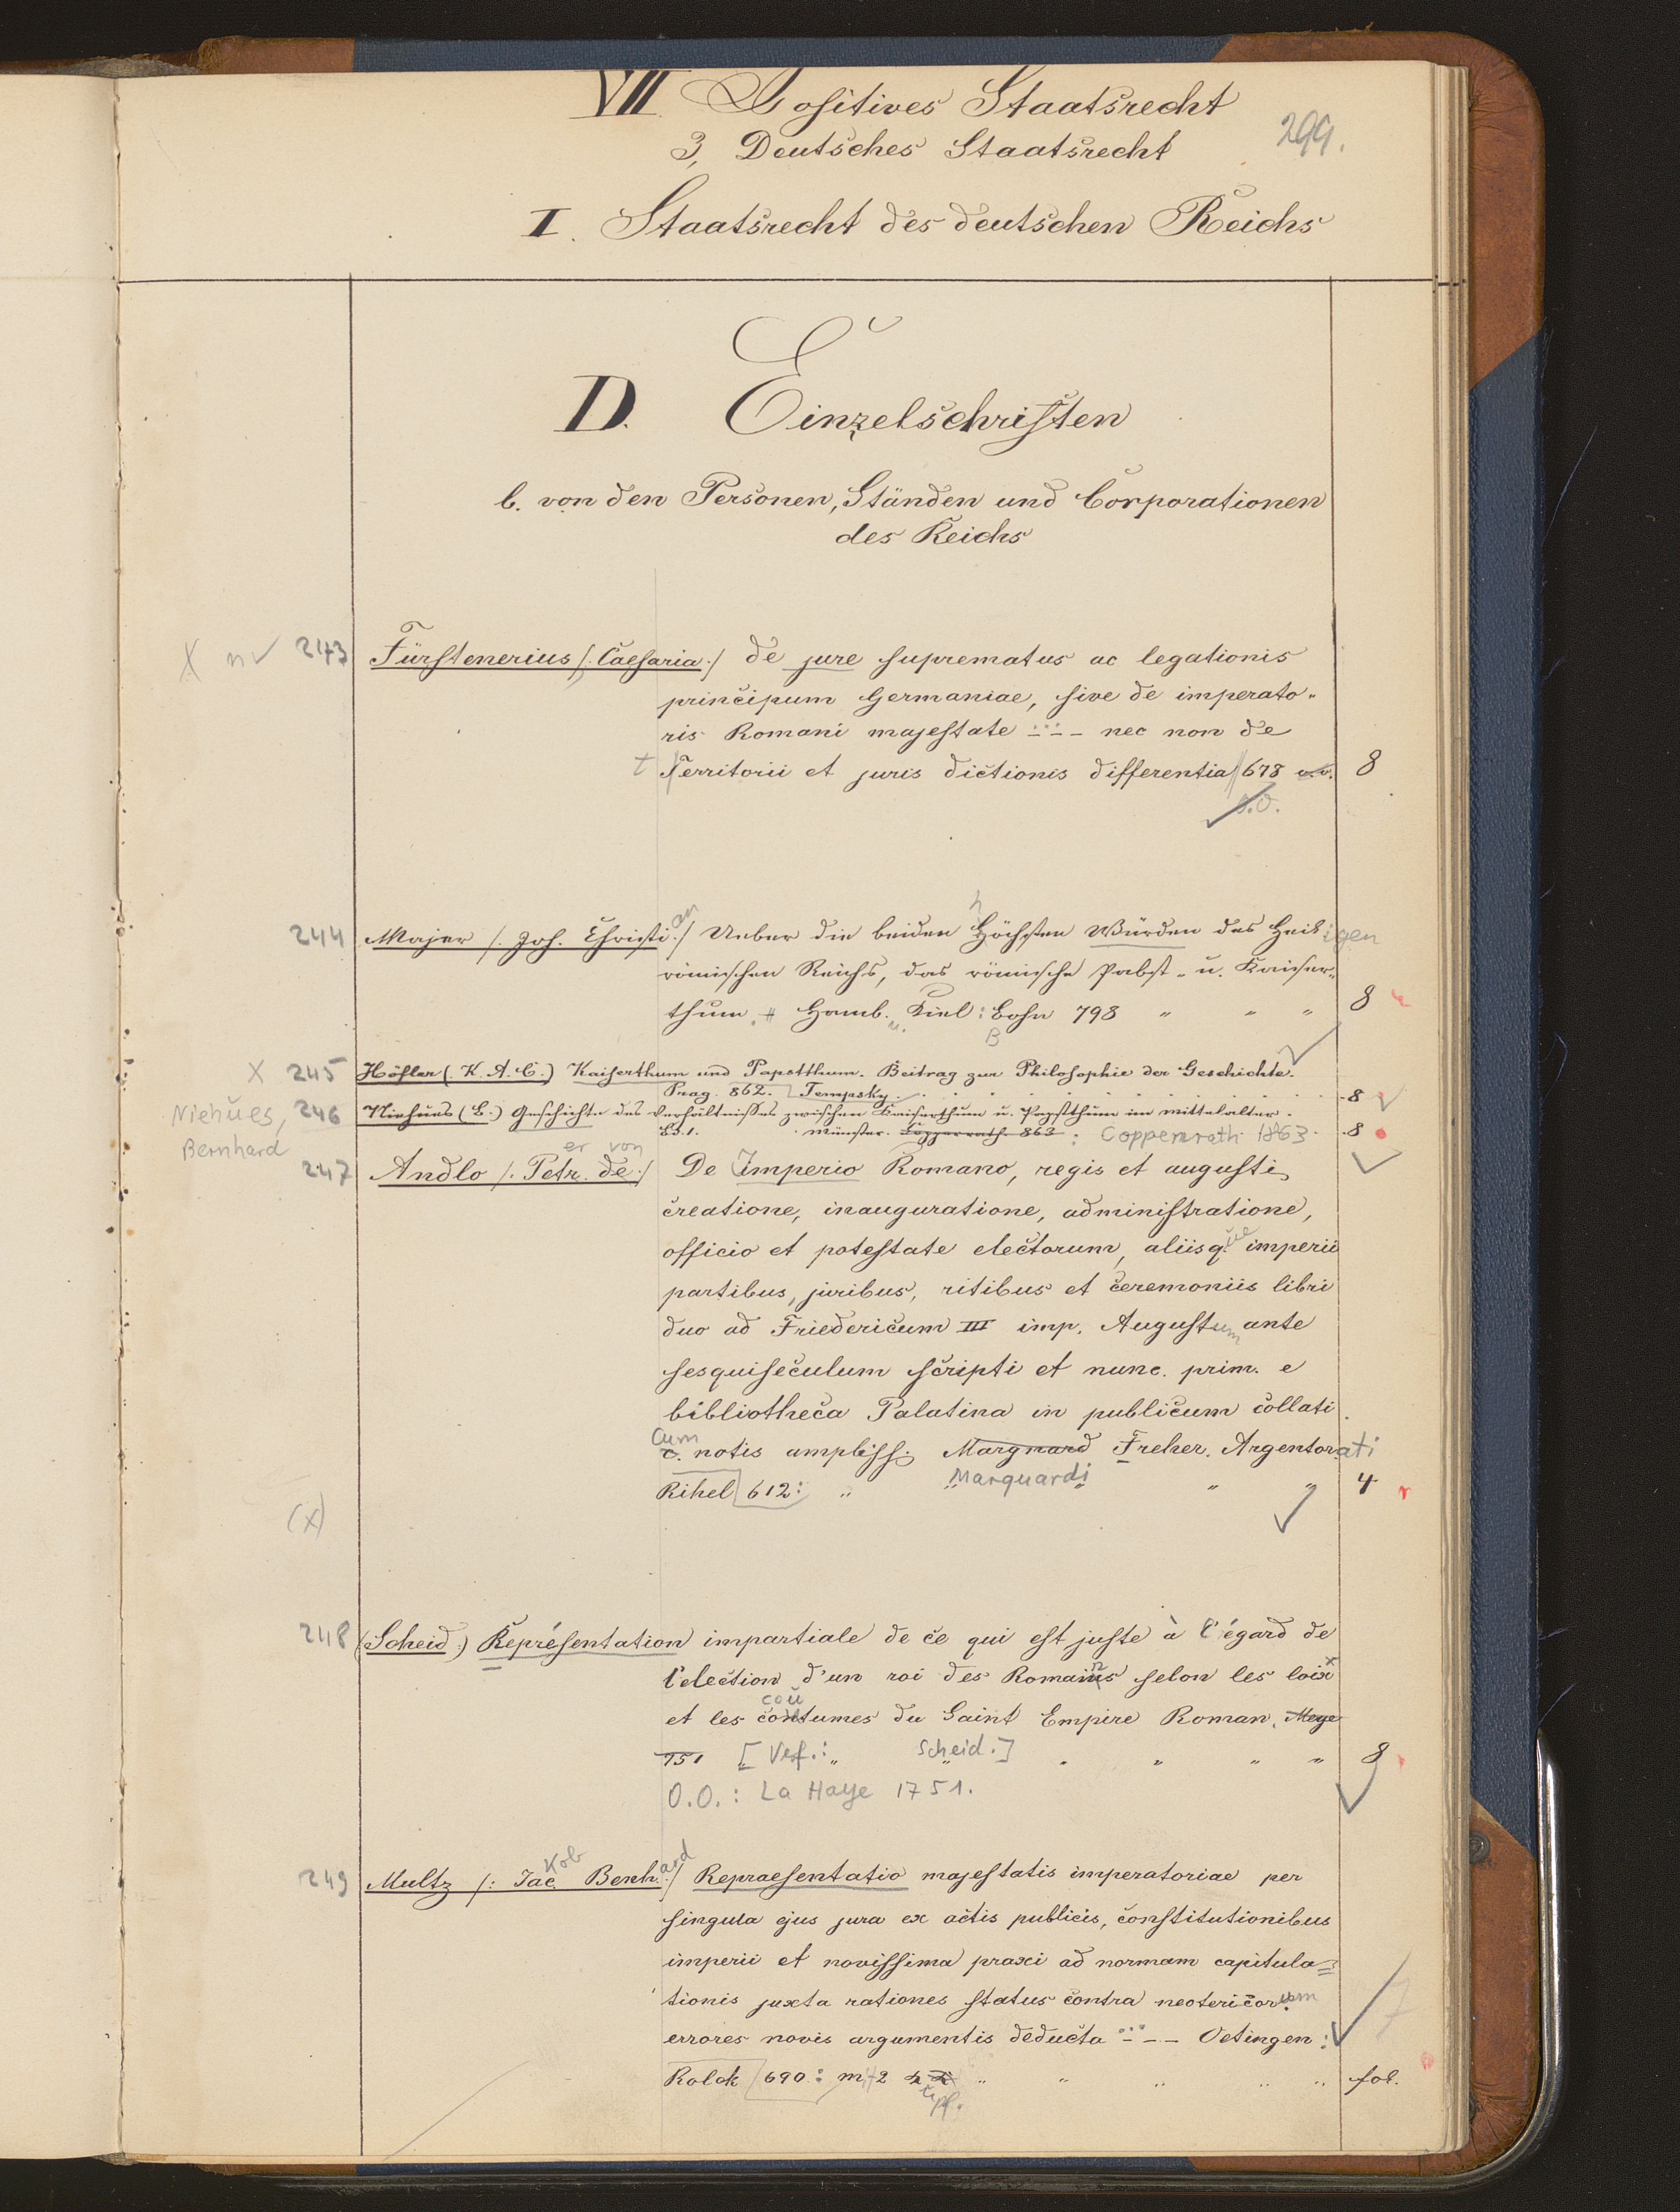 VII. Positives Staatsrecht
299.
3, Deutsches Staatsrecht
I. Staatsrecht des deutschen Reichs
D. Einzelschriften
b. von den Personen, Ständen und Corporationen
des Reichs
X n✓ 243 Fürstenerius /. Caesaria ./ de jure suprematus ac legationis
principum Germaniae, sive de imperato-
ris Romani majestate ÷-- nec non de
t Territorii et juris dictionis differentia 678 o.O. 8
s.O.
244 Majer /. Joh. Christian ./ Ueber die beiden Höchsten Würden des Heiligen
h
römischen Reichs, das römische Pabst- u. Kaiser-
thum. Hamb. u. Kiel: Bohn 798 " " " 8
X 245 Höfler (K. A. C.) Kaiserthum und Papstthum. Beitrag zur Philosophie der Geschichte.
Prag. 862. Tempsky. 8
Niehues, 246 Niehues (B.) Geschichte des Verhältnisses zwischen Kaiserthum u. Papstthum im Mittelalter.
Bd. 1. Münster. Coppenrath 863: Coppenrath 1863. 8
Bernhard
er von
247 Andlo /. Petr. de ./ De imperio Romano, regis et augusti
creatione, inauguratione, administratione,
officio et potestate electorum, aliisq.ue imperii
partibus, juribus, ritibus et ceremoniis libri
duo ad Friedericum III imp. Augustum ante
sesquiseculum scripti et nunc. prim. e
bibliotheca Palatina in publicum collati
Cum
c. notis ampliss. Margnard Freher. Argentorati
Marquardi
Rihel 612: " " " " 4
(x)
248 (Scheid.) Représentation impartiale de ce qui est juste à l'égard de
l'election d'un roi des Romains selon les loix
coû
et les coutumes du Saint Empire Roman. Meye
751 [Verf.: Scheid.] " " " " 8
O.O.: La Haye 1751.
249 Multz /: Jacob Bernhard ./ Repraesentatio majestatis imperatoriae per
singula ejus jura ex actis publicis, constitutionibus
imperii et novissima praxi ad normam capitula-
tionis juxta rationes status contra neotericorum
errores novis argumentis deducta ÷-- Oetingen:
Kolck 690: m. 2 " " " " " fol.
tipf.